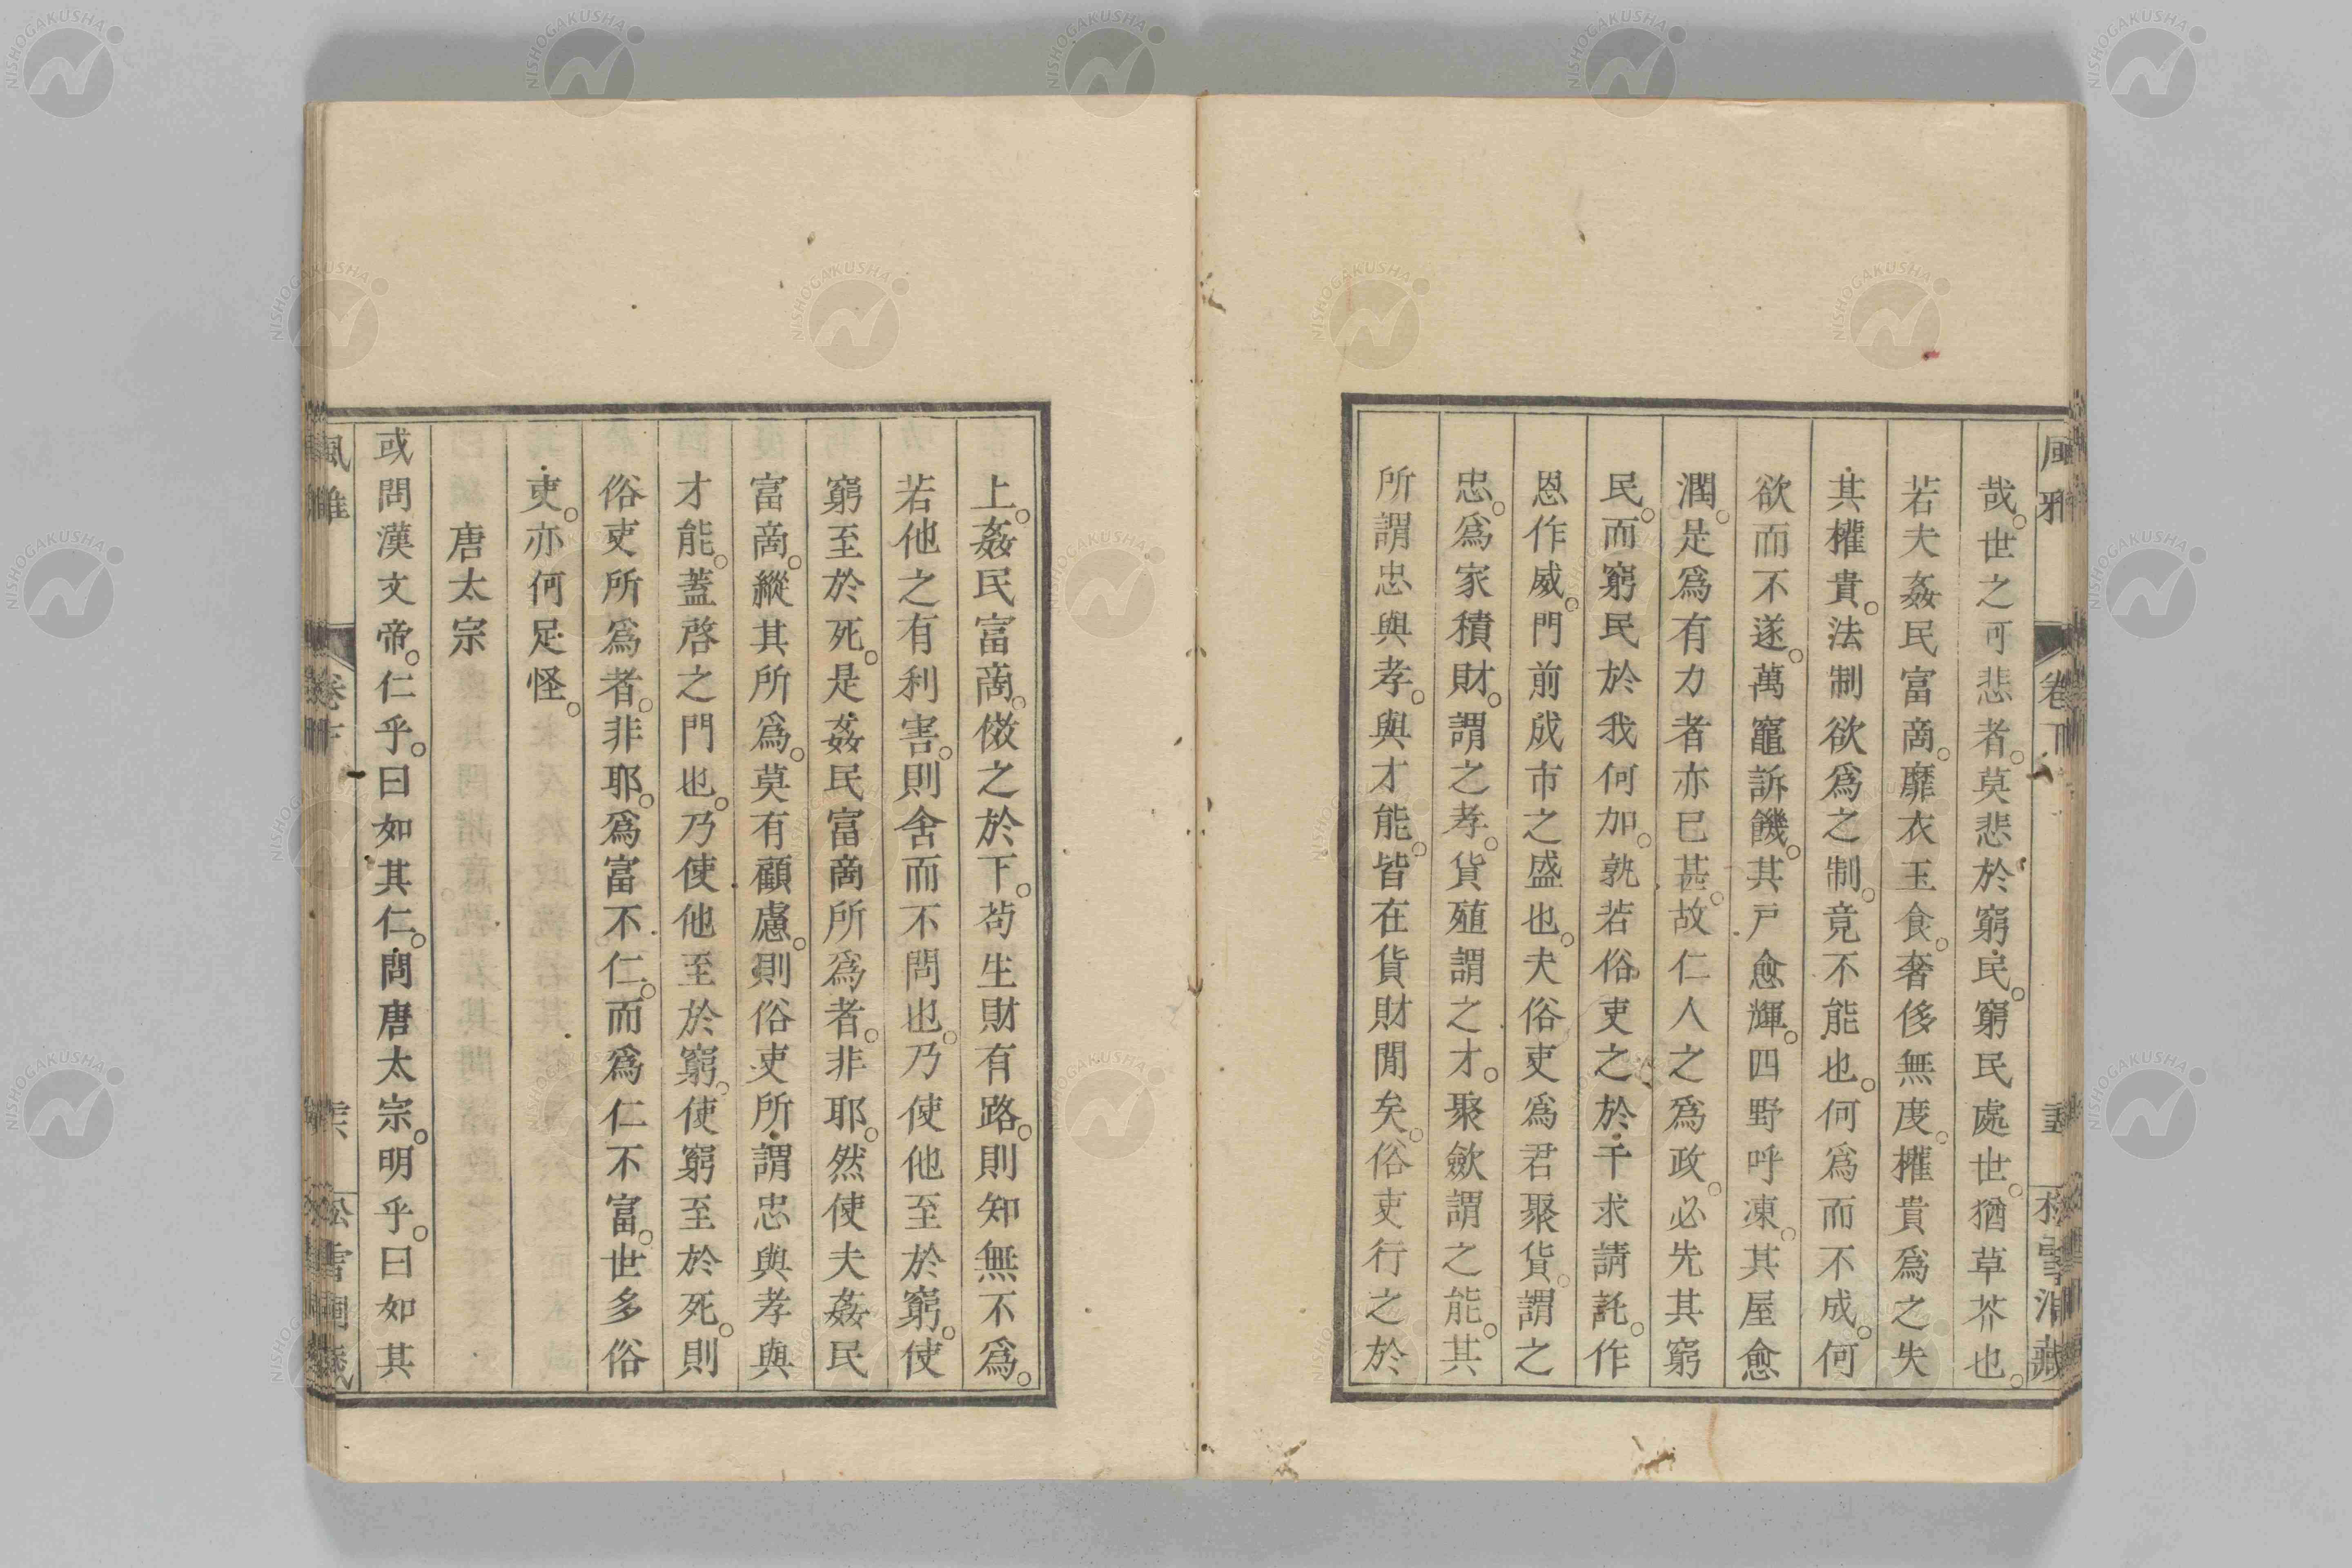 哉。世之可悲者。莫悲於窮民。窮民處世。猶草芥也。
若夫姦民富商。靡衣玉食。奢侈無度。權貴爲之失
其權貴。法制欲爲之制。竟不能也。何爲而不成。何
欲而不遂。萬竈訴饑。其戸愈輝。四野呼凍。其屋愈
潤。是爲有力者亦已甚。故仁人之爲政。必先其窮
民。而窮民於我何加。孰若俗吏之於干求請託。作
恩作威。門前成市之盛也。夫俗吏爲君聚貨。謂之
忠。爲家積財。謂之孝。貨殖謂之才。聚斂謂之能。其
所謂忠與孝。與才能。皆在貨財間矣。俗吏行之於
上。姦民富商。傚之於下。苟生財有路。則知無不爲。
若他之有利害。則舍而不問也。乃使他至於窮。使
窮至於死。是姦民富商所爲者。非耶。然使夫姦民
富商。縱其所爲。莫有顧慮。則俗吏所謂忠與孝與
才能。蓋啓之門也。乃使他至於窮。使窮至於死。則
俗吏所爲者。非耶。爲富不仁。而爲仁不富。世多俗
吏。亦何足怪。
唐太宗
或問漢文帝。仁乎。曰如其仁。問唐太宗。明乎。曰如其
NISHOGAKUSHA